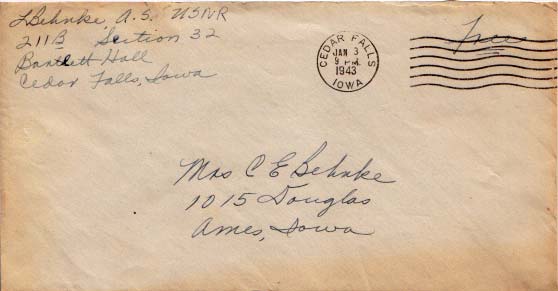 L Behnke, A.S. USNR
211B Section 32
Bartlett Hall
Cedar Falls, Iowa
CEDAR FALLS
JAN 3
9 PM
1943
IOWA
Free
Mrs C E Behnke
1015 Douglas
Ames, Iowa